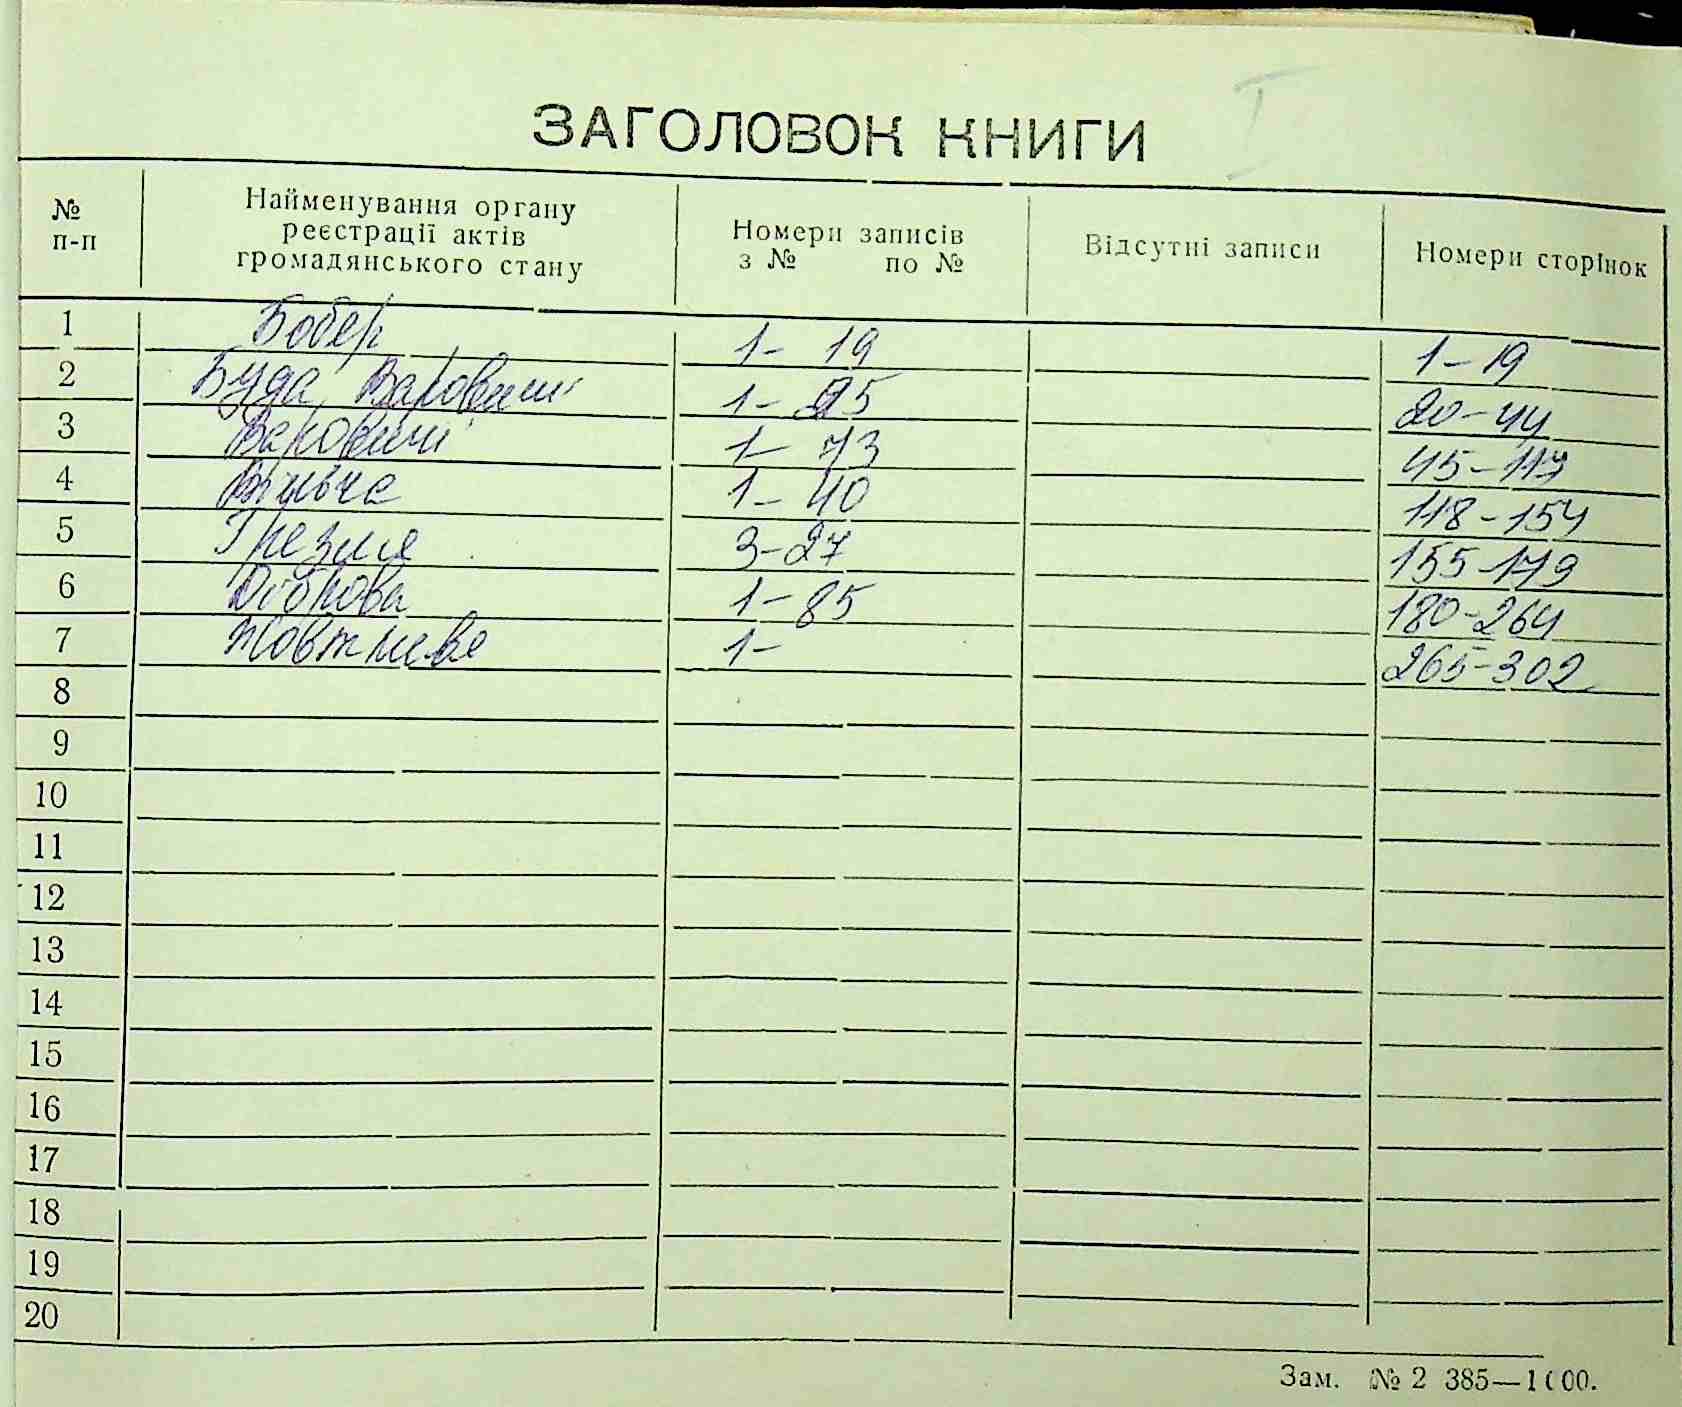 I
ЗАГОЛОВОК КНИГИ
№ п-п
Найменування органу реєстрації актів громадянського стану
Номери записів з № по №
Відсутні записи
Номери сторінок
1 Бобер 1- 19 1-19
2 Буда Варовичі 1- 25 20-44
3 Варовичі 1- 73 45-117
4 Вільча 1- 40 118-154
5 Грезля 3-27 155-179
6 Діброва 1-85 180-264
7 Жовтневе 1- 265-302
8
9
10
11
12
13
14
15
16
17
18
19
20
Зам. № 2 385—1000.